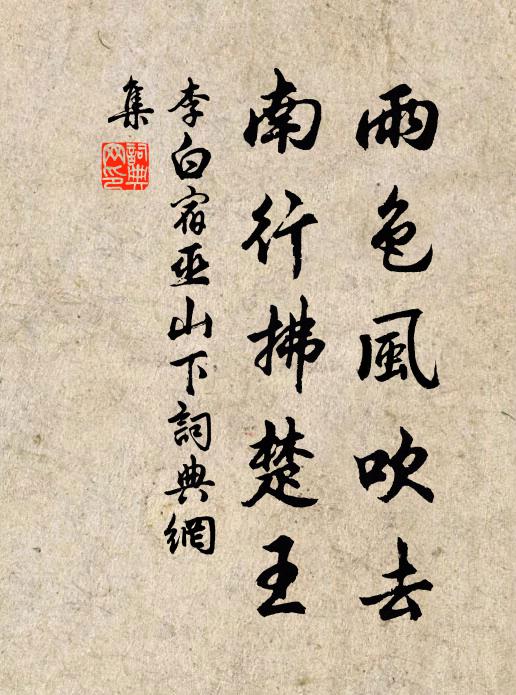 雨色風吹去
南行拂楚王
李白宿巫山下詞典網
集
詞典網印